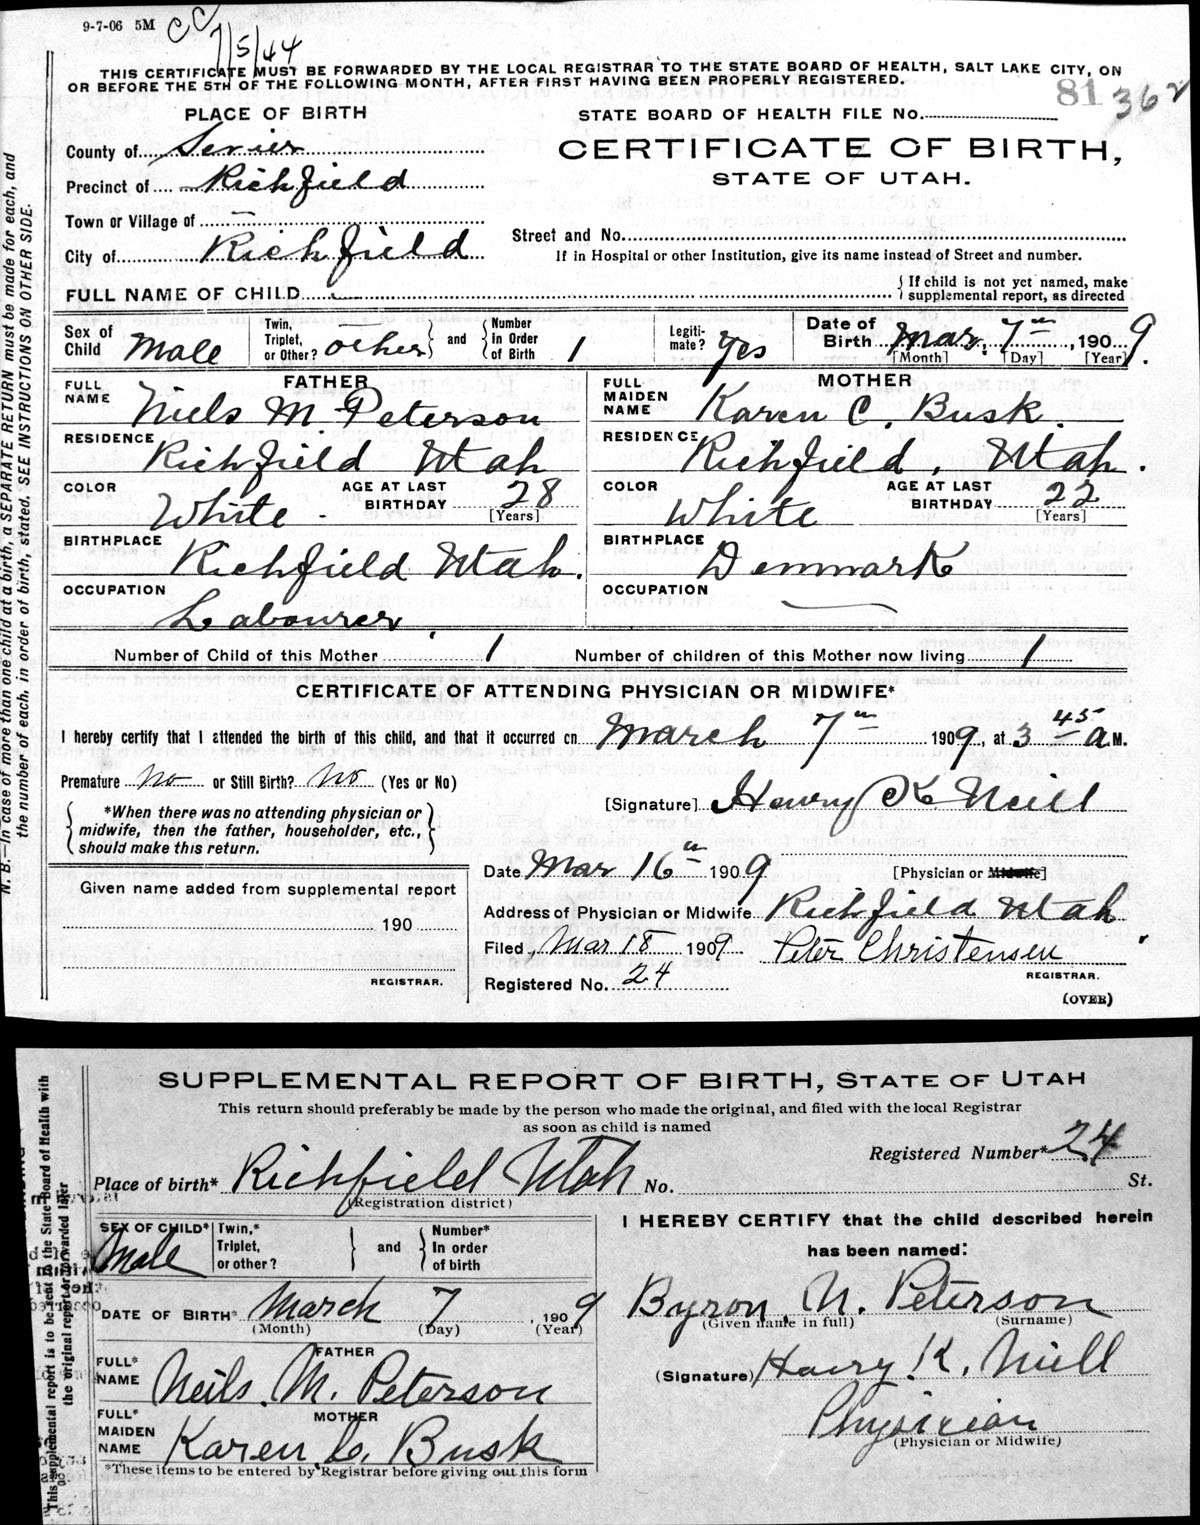 9-7-06 5M CC 7/5/44
THIS CERTIFICATE MUST BE FORWARDED BY THE LOCAL REGISTRAR TO THE STATE BOARD OF HEALTH, SALT LAKE CITY, ON
OR BEFORE THE 5TH OF THE FOLLOWING MONTH, AFTER FIRST HAVING BEEN PROPERLY REGISTERED.
81 362
PLACE OF BIRTH
STATE BOARD OF HEALTH FILE No.
County of Sevier
CERTIFICATE OF BIRTH,
STATE OF UTAH.
Precinct of Richfield
Town or Village of —
Street and No.
City of Richfield
If in Hospital or other Institution, give its name instead of Street and number.
FULL NAME OF CHILD
{If child is not yet named, make
supplemental report, as directed
Sex of Child Male
Twin, Triplet, or Other? other } and { Number In Order of Birth 1
Legiti-mate? yes
Date of Birth Mar. 7th, 1909.
[Month] [Day] [Year]
FATHER
FULL NAME Niels M. Peterson
MOTHER
FULL MAIDEN NAME Karen C. Busk.
RESIDENCE Richfield Utah
RESIDENCE Richfield, Utah.
COLOR White - AGE AT LAST BIRTHDAY 28 [Years]
COLOR White AGE AT LAST BIRTHDAY 22 [Years]
BIRTHPLACE Richfield Utah.
BIRTHPLACE Denmark
OCCUPATION Labourer
OCCUPATION —
Number of Child of this Mother 1 Number of children of this Mother now living 1
CERTIFICATE OF ATTENDING PHYSICIAN OR MIDWIFE*
I hereby certify that I attended the birth of this child, and that it occurred on March 7th 1909, at 3 45 a M.
Premature no or Still Birth? no (Yes or No)
[Signature] Henry K Neill
{ *When there was no attending physician or
midwife, then the father, householder, etc.,
should make this return. }
Date Mar 16th 1909 [Physician or Midwife]
Given name added from supplemental report
190
REGISTRAR.
Address of Physician or Midwife Richfield Utah
Filed, Mar 18 1909. Peter Christensen
REGISTRAR.
Registered No. 24
(OVER)
N. B.—In case of more than one child at a birth, a SEPARATE RETURN must be made for each, and
the number of each, in order of birth, stated. SEE INSTRUCTIONS ON OTHER SIDE.
SUPPLEMENTAL REPORT OF BIRTH, STATE OF UTAH
This return should preferably be made by the person who made the original, and filed with the local Registrar
as soon as child is named
Registered Number* 24
Place of birth* Richfield Utah No. St.
(Registration district)
SEX OF CHILD* Male
Twin,* Triplet, or other? } and { Number* In order of birth
I HEREBY CERTIFY that the child described herein
has been named:
DATE OF BIRTH* March 7, 1909
(Month) (Day) (Year)
Byron N. Peterson
(Given name in full) (Surname)
FATHER
FULL* NAME Neils. M. Peterson
(Signature) Henry K. Neill
MOTHER
FULL* MAIDEN NAME Karen C. Busk
Physician
(Physician or Midwife)
*These items to be entered by Registrar before giving out this form
This supplemental report is to be sent to the State Board of Health with
the original report or forwarded later